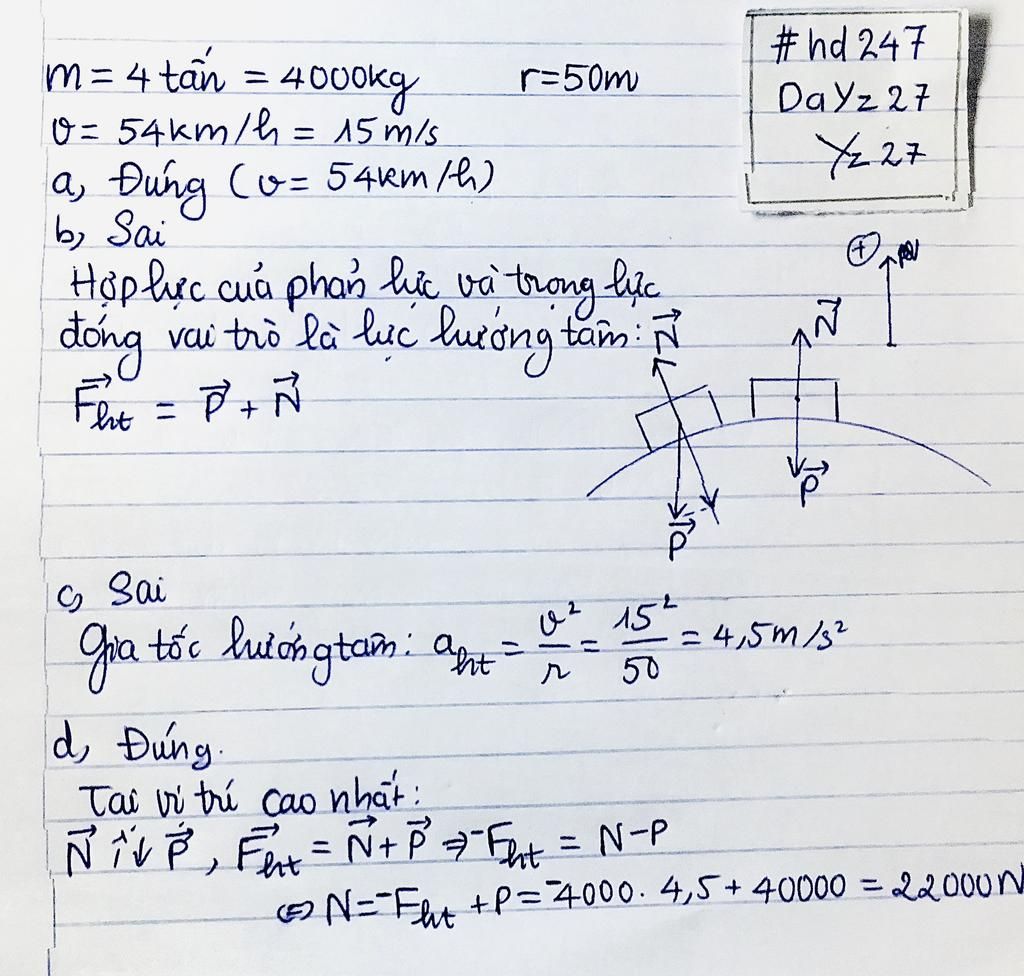 #hd247
DaYz27
Yz27
m = 4 tấn = 4000kg r=50m
v = 54km/h = 15 m/s
a, Đúng (v = 54km/h)
b, Sai
Hợp lực của phản lực và trọng lực
đóng vai trò là lực hướng tâm:
F⃗ht = P⃗ + N⃗
N⃗
P⃗
N⃗
P⃗
⊕
c, Sai
Gia tốc hướng tâm: aht = v²/r = 15²/50 = 4,5m/s²
d, Đúng.
Tại vị trí cao nhất:
N⃗ ↑↓ P⃗, F⃗ht = N⃗ + P⃗ ⇒ -Fht = N - P
⇔ N = -Fht + P = -4000. 4,5 + 40000 = 22000N